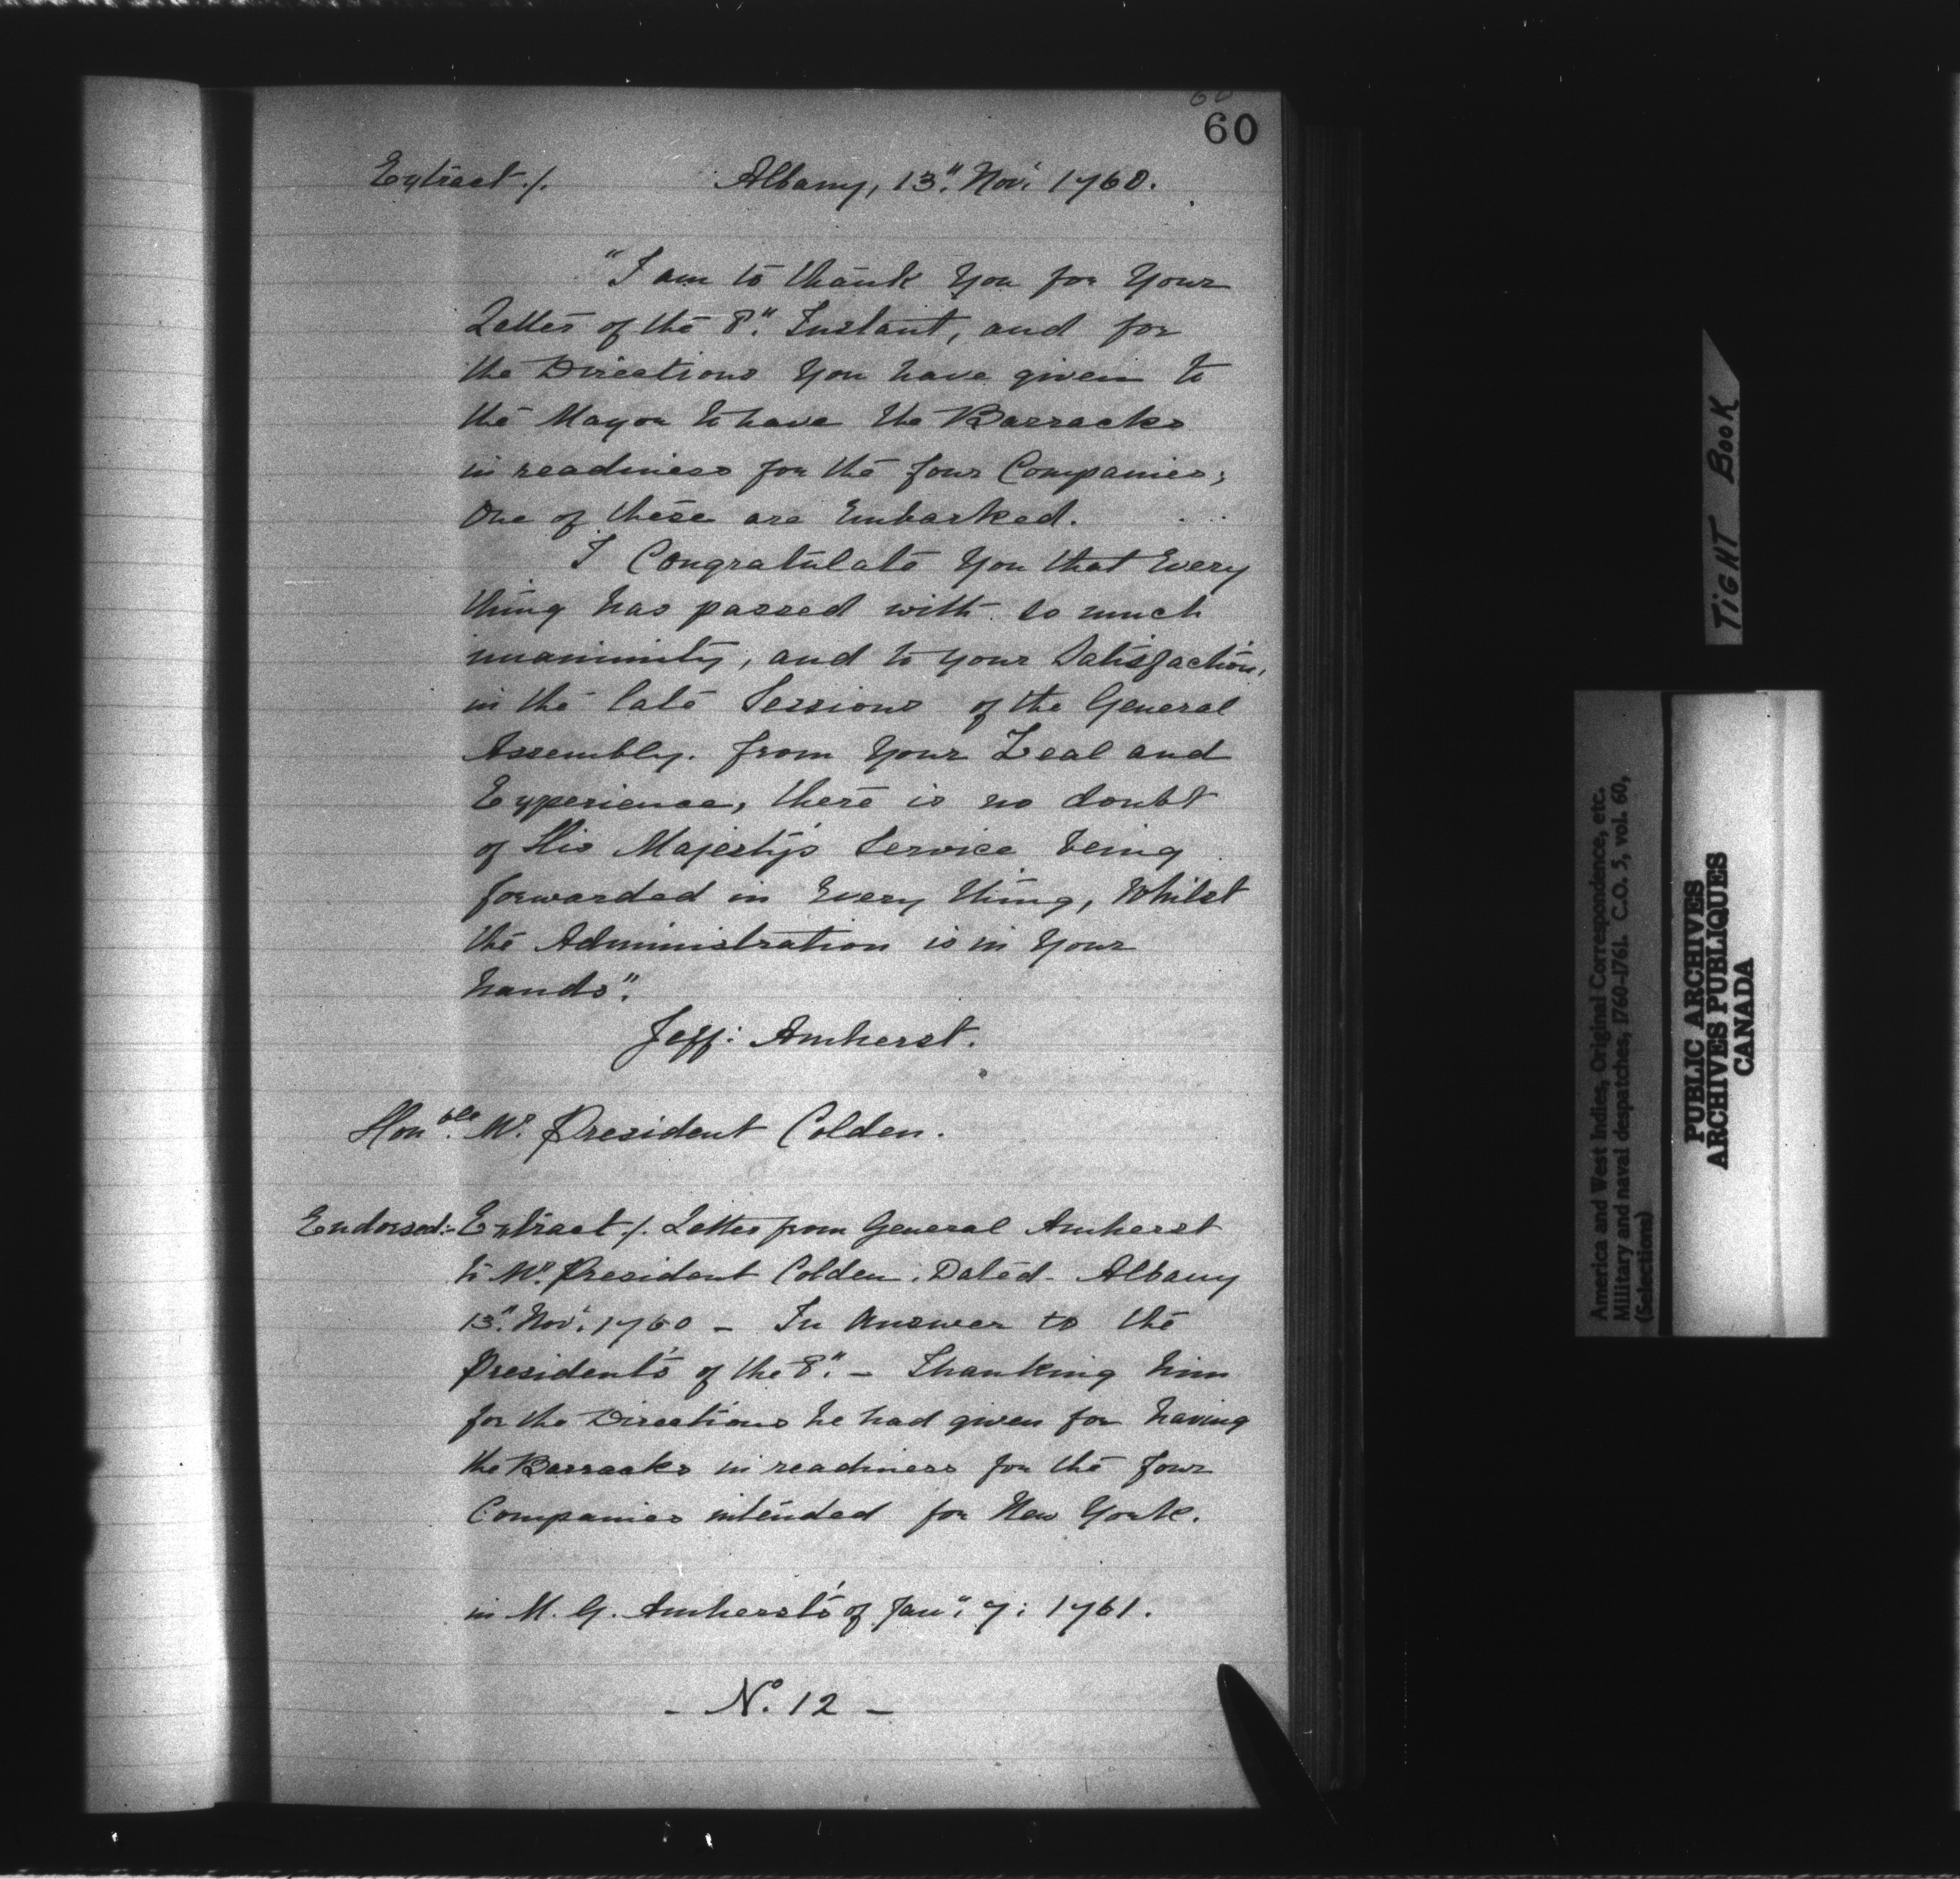 60
60
Extract ./. Albany, 13." Nov.' 1760.
"I am to thank You for Your
Letter of the 8." Instant, and for
the Directions You have given to
the Mayor to have the Barracks
in readiness for the four Companies;
One of these are Embarked.
I Congratulate You that Every
thing has passed with so much
unanimity, and to your Satisfaction,
in the late Sessions of the General
Assembly. From Your Zeal and
Experience, there is no doubt
of His Majesty's Service being
forwarded in Every thing, Whilst
the Administration is in Your
hands".
Jeff: Amherst.
Hon.ble Mr. President Colden.
Endorsed:- Extract ./. Letter from General Amherst
to Mr. President Colden. Dated - Albany
13." Nov.' 1760 - In Answer to the
President's of the 8." - Thanking him
for the Directions he had given for having
the Barracks in readiness for the four
Companies intended for New York.
in M. G. Amherst's of Jan.": 7: 1761.
- No. 12 -
TIGHT BOOK
America and West Indies, Original Correspondence, etc.
Military and naval despatches, 1760-1761. C.O. 5, vol. 60,
(Selections)
PUBLIC ARCHIVES
ARCHIVES PUBLIQUES
CANADA